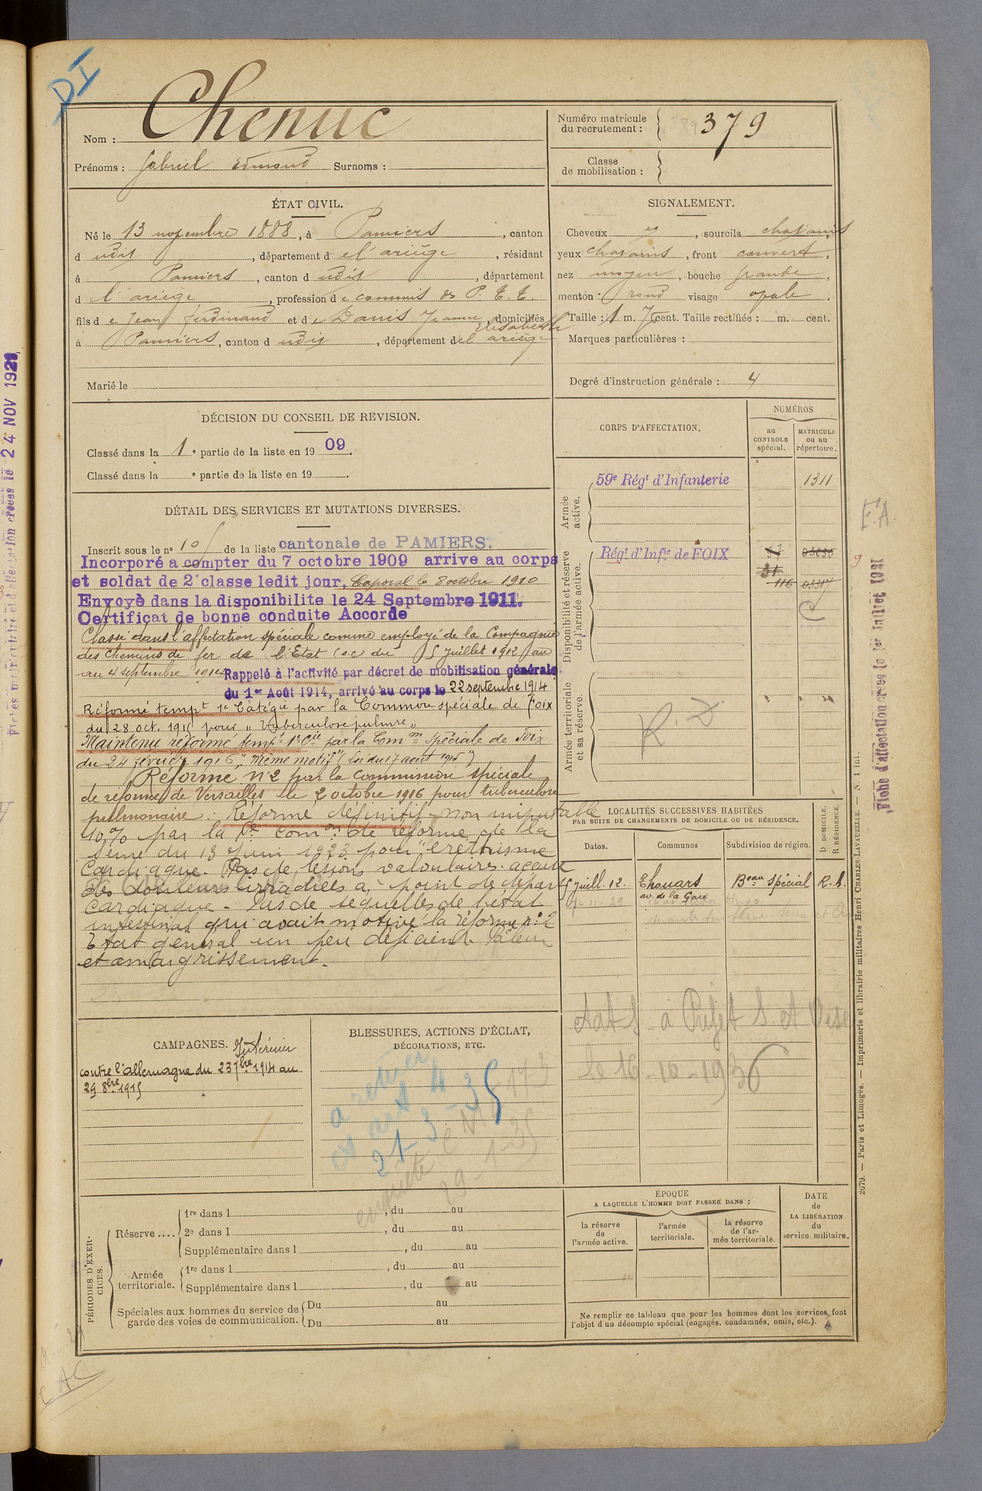 DI
Nom : Chenuc
Prénoms : Gabriel Edmond Surnoms :
Numéro matricule du recrutement : 379
Classe de mobilisation :
ÉTAT CIVIL.
Né le 13 novembre 1888, à Pamiers, canton
d udit, département de l'ariège, résidant
à Pamiers, canton d udit, département
d e l'ariège, profession de commis des P. T. T.
fils de Jean Ferdinand et de Danis Jeanne Elisabeth, domiciliés
à Pamiers, canton d udit, département de l'ariège
Marié le
SIGNALEMENT.
Cheveux et, sourcils chatains
yeux chatains, front couvert,
nez moyen, bouche grande,
menton : rond visage ovale.
Taille : 1 m. cent. Taille rectifiée : m. cent.
Marques particulières :
Degré d'instruction générale : 4
DÉCISION DU CONSEIL DE REVISION.
Classé dans la 1e partie de la liste en 1909.
Classé dans la e partie de la liste en 19
DÉTAIL DES SERVICES ET MUTATIONS DIVERSES.
Inscrit sous le n° 10 de la liste cantonale de PAMIERS.
Incorporé a compter du 7 octobre 1909 arrive au corps
et soldat de 2e classe ledit jour. Caporal le 8 octobre 1910
Envoyé dans la disponibilite le 24 Septembre 1911.
Certificat de bonne conduite Accorde
Classé dans l'affectation spéciale comme employé de la Compagnie
des chemins de fer de l'Etat du 5 juillet 1912 au
au 4 septembre 1914 Rappelé à l'activité par décret de mobilisation générale
du 1er Août 1914, arrivé au corps le 22 septembre 1914
Réformé tempt 1e Catégie par la Commion spéciale de Foix
du 28 oct. 1915 pour "Tuberculose pulmre"
Maintenu réformé tempe 1e Cie par la Comon spéciale de Foix
du 24 février 1916 "Même motif" (Loi du 17 août 1915)
Réformé N°2 par la commission spéciale
de réforme de Versailles le 2 octobre 1916 pour tuberculose
pulmonaire. Réformé définitif non imputable
10% par la 1re Comon de réforme de la
Seine du 13 juin 1923 pour "éréthisme
cardiaque. Pas de lésions valvulaires. accuse
des douleurs irradiées à point de départ
cardiaque. Pas de séquelles de l'état
intestinal qui avait motivé la réforme n° 2
Etat général un peu déficient. Pâleur
et amaigrissement.
CORPS D'AFFECTATION.
NUMÉROS
au CONTROLE spécial.
MATRICULE ou au répertoire.
Armée active.
59e Régt d'Infanterie 1311
Disponibilité et réserve de l'armée active.
Régt d'Infie de FOIX
Armée territoriale et sa réserve.
R. D.
F.A.
LOCALITÉS SUCCESSIVES HABITÉES
PAR SUITE DE CHANGEMENTS DE DOMICILE OU DE RÉSIDENCE.
Dates. Communes Subdivision de région. D. DOMICILE. R. RÉSIDENCE.
5 juill. 12. Thouars Beau Spécial R. h.
av. de la Gare
État S à Préfet S. et Oise
le 16-10-1936
CAMPAGNES.
Intérieur
contre l'allemagne du 23 7bre 1914 au
29 8bre 1915
BLESSURES, ACTIONS D'ÉCLAT,
DÉCORATIONS, ETC.
21-3-35
enquête
29-1-35
PÉRIODES D'EXERCICES.
Réserve....
1re dans l , du au
2e dans l , du au
Supplémentaire dans l , du au
Armée territoriale.
1re dans l , du au
Supplémentaire dans l , du au
Spéciales aux hommes du service de garde des voies de communication.
Du au
Du au
ÉPOQUE
A LAQUELLE L'HOMME DOIT PASSER DANS :
la réserve de l'armée active.
l'armée territoriale.
la réserve de l'armée territoriale.
DATE de LA LIBÉRATION du service militaire.
Ne remplir ce tableau que pour les hommes dont les services font
l'objet d'un décompte spécial (engagés, condamnés, omis, etc.).
2679. — Paris et Limoges. — Imprimerie et librairie militaires Henri CHARLES-LAVAUZELLE.
Fiche d'affectation créée le 1er Juillet 1921